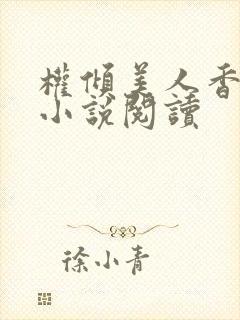 權傾美人香
小說閱讀
徐小青